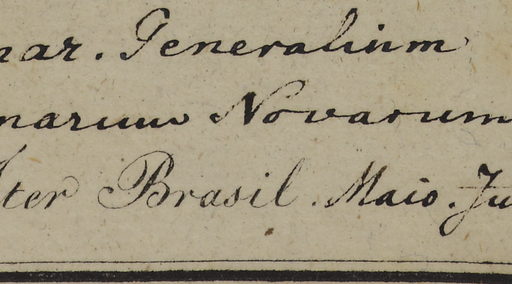 nar. Generalium
narum Novarum
Iter Brasil. Maio. Ju